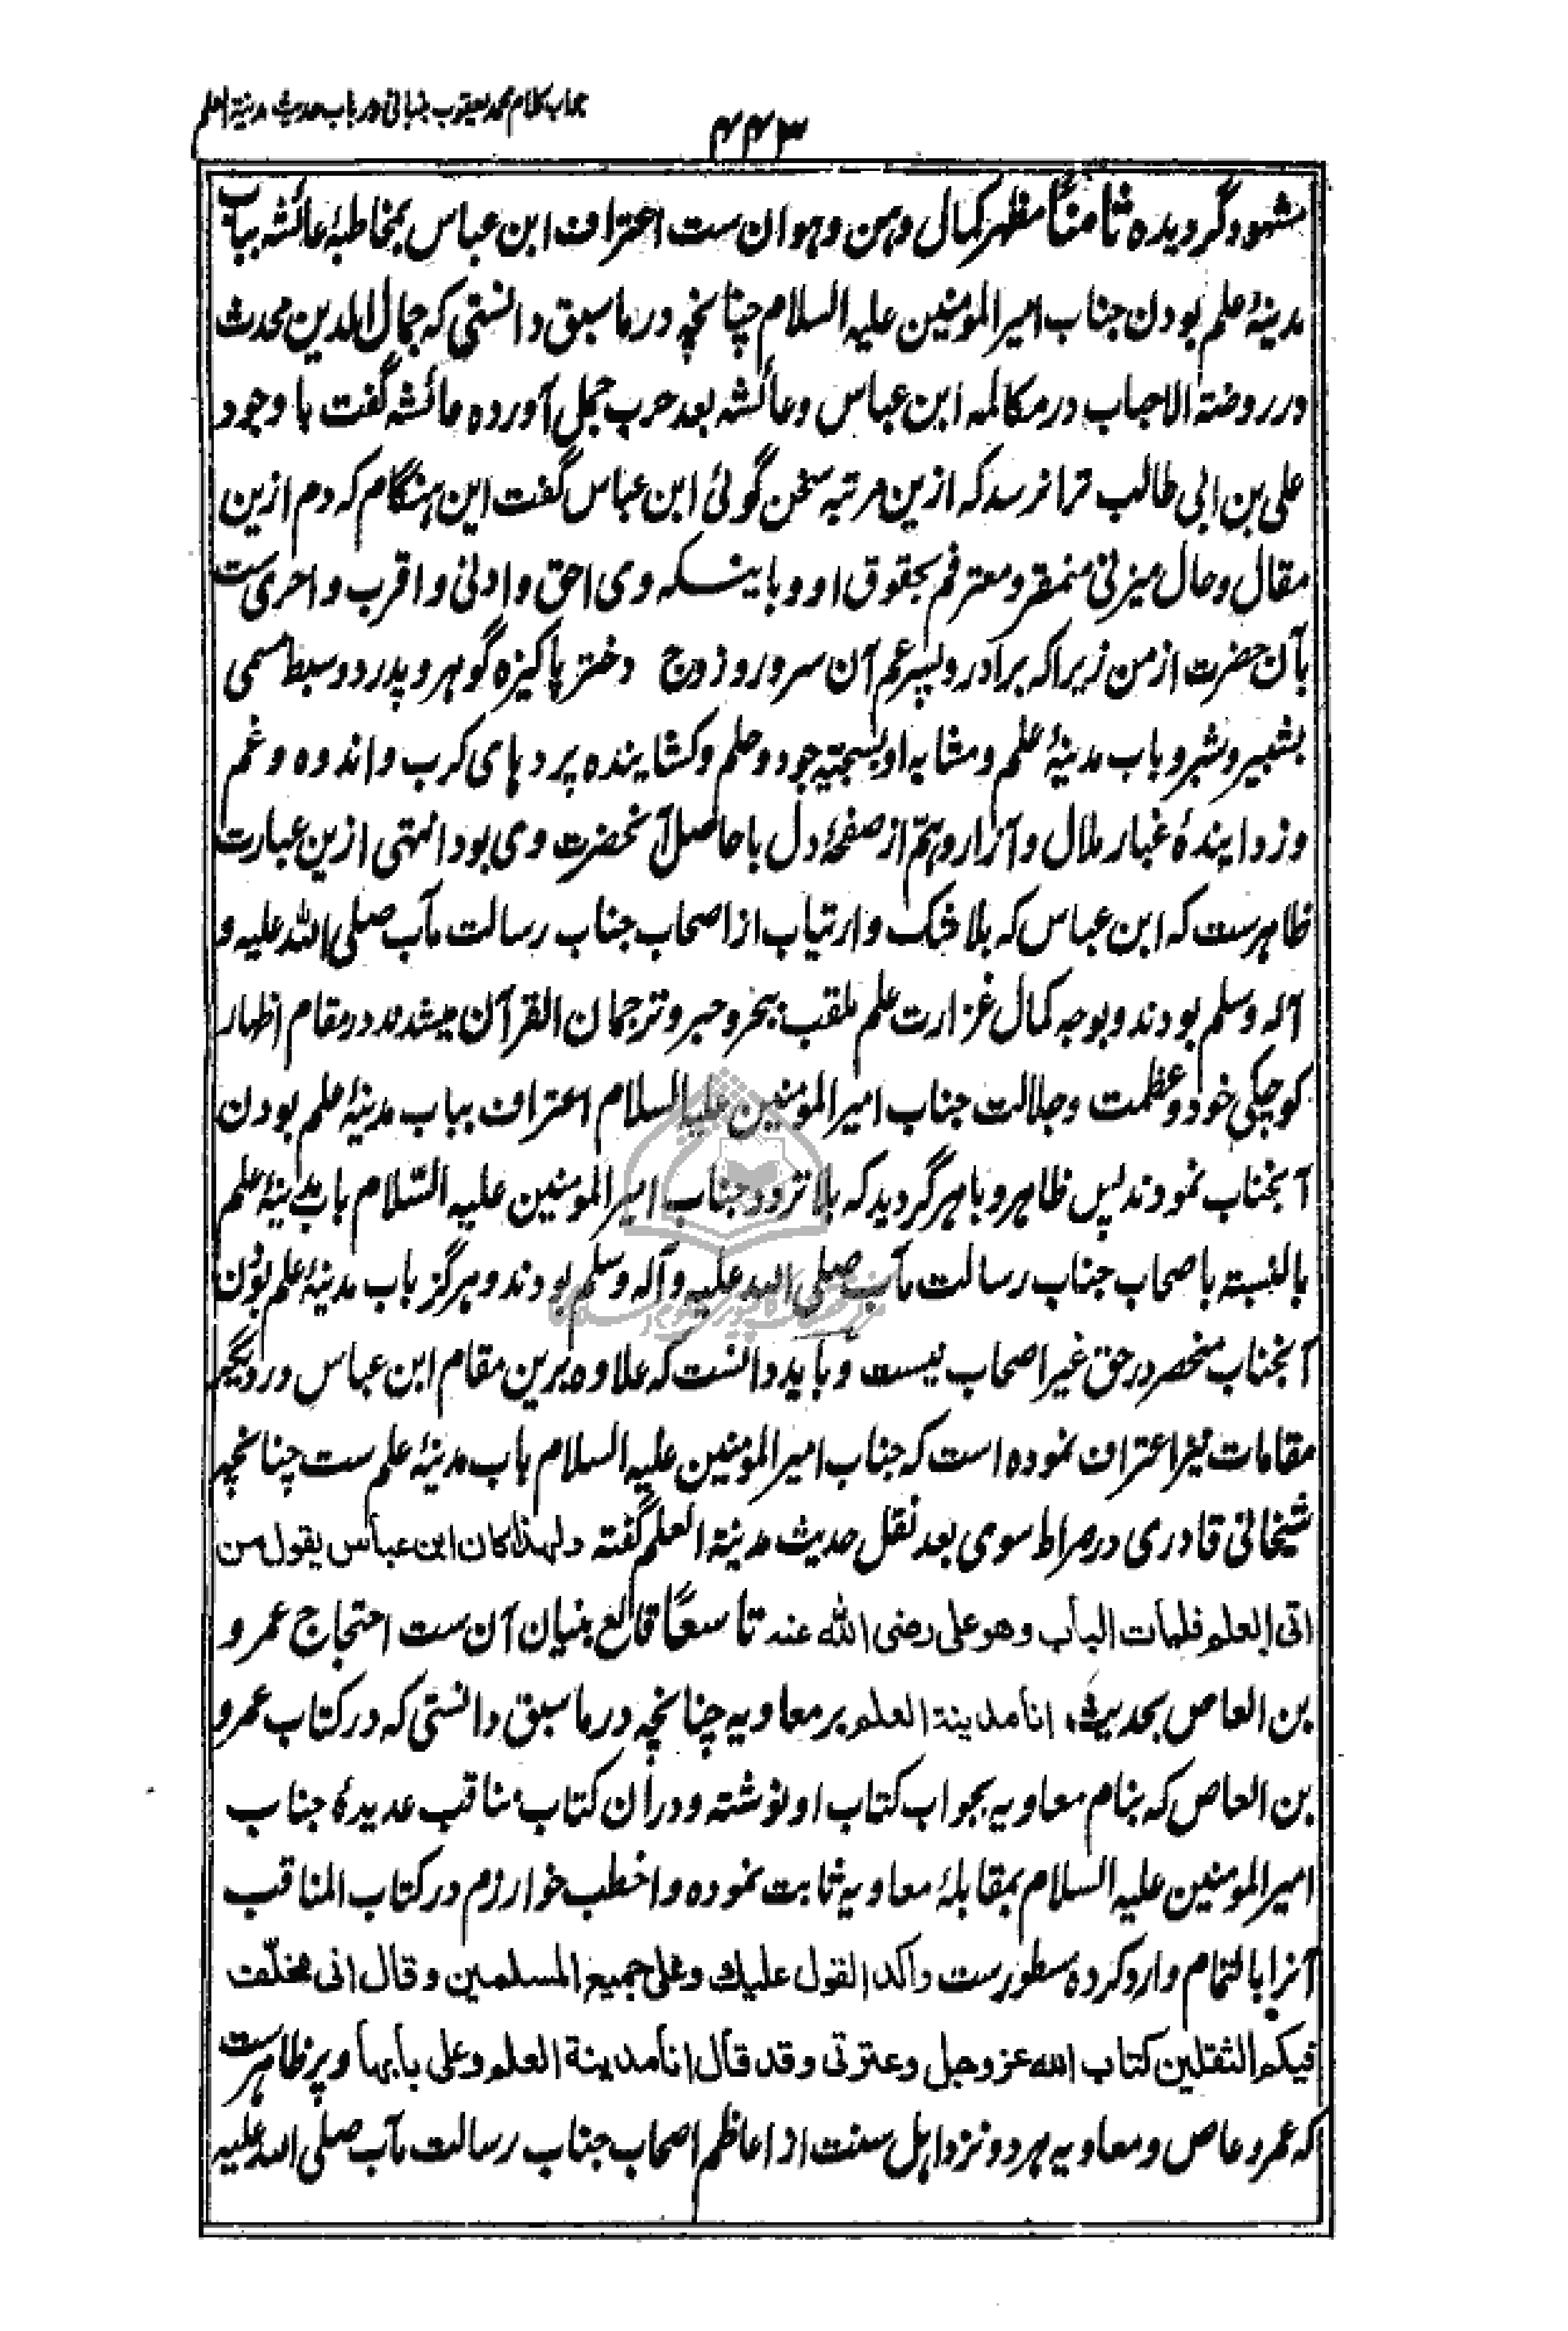 جواب کلام محمد یعقوب بنبانی در باب حدیث مدینة العلم
۴۴۳
مشهود گردیده ثامناً مظهر کمال وهن و هوان ست اعتراف ابن عباس بمخاطبهٔ عائشه بباب
مدینهٔ علم بودن جناب امیرالمؤمنین علیه السلام چنانچه در ماسبق دانستی که جمال الدین محدث
در روضة الاحباب در مکالمه ابن عباس و عائشه بعد حرب جمل آورده عائشه گفت با وجود
علی بن ابی طالب ترا نرسد که ازین مرتبه سخن گوئی ابن عباس گفت این هنگام که دم ازین
مقال و حال میزنی منمقر و معترفم بحقوق او و باینکه وی احق و اولی و اقرب و احری ست
بآن حضرت از من زیرا که برادر و پسر عم آن سرور و زوج دختر پاکیزه گوهر و پدر دو سبط مسمی
بشبیر و شبر و باب مدینهٔ علم و مشابه او بسجیّه جود و حلم و کشاینده پردهای کرب و اندوه و غم
و زدایندهٔ غبار ملال و آزار و همّ از صفحهٔ دل با حاصل آنحضرت وی بود انتهی ازین عبارت
ظاهرست که ابن عباس که بلا شک و ارتیاب از اصحاب جناب رسالت مآب صلی الله علیه و
آله و سلم بودند و بوجه کمال غزارت علم ملقب ببحر و حبر و ترجمان القرآن میشدند در مقام اظهار
کوچکی خود و عظمت و جلالت جناب امیرالمؤمنین علیه السلام اعتراف بباب مدینهٔ علم بودن
آنجناب نمودند پس ظاهر و باهر گردید که بلا تردد جناب امیرالمؤمنین علیه السّلام باب مدینهٔ علم
بالنسبته باصحاب جناب رسالت مآب صلی الله علیه و آله و سلم بودند و هرگز باب مدینهٔ علم بودن
آنجناب منحصر در حق غیر اصحاب نیست و باید دانست که علاوه برین مقام ابن عباس در دیگر
مقامات نیز اعتراف نموده است که جناب امیرالمؤمنین علیه السلام باب مدینهٔ علم ست چنانچه
شیخانی قادری در صراط سوی بعد نقل حدیث مدینة العلم گفته ولهذا کان ابن عباس یقول من
اتی العلم فلیأت الباب وهو علی رضی الله عنه تاسعاً قالع بنیان آن ست احتجاج عمرو
بن العاص بحدیث انا مدینة العلم بر معاویه چنانچه در ماسبق دانستی که در کتاب عمرو
بن العاص که بنام معاویه بجواب کتاب او نوشته و در آن کتاب مناقب عدیدهٔ جناب
امیرالمؤمنین علیه السلام بمقابلهٔ معاویه ثابت نموده و اخطب خوارزم در کتاب المناقب
آنرا بالتمام وارد کرده سطورست واکد القول علیک وعلی جمیع المسلمین وقال انی مخلّف
فیکم الثقلین کتاب الله عز وجل وعترتی وقد قال انا مدینة العلم وعلی بابها و پر ظاهرست
که عمرو عاص و معاویه هر دو نزد اهل سنت از اعاظم اصحاب جناب رسالت مآب صلی الله علیه